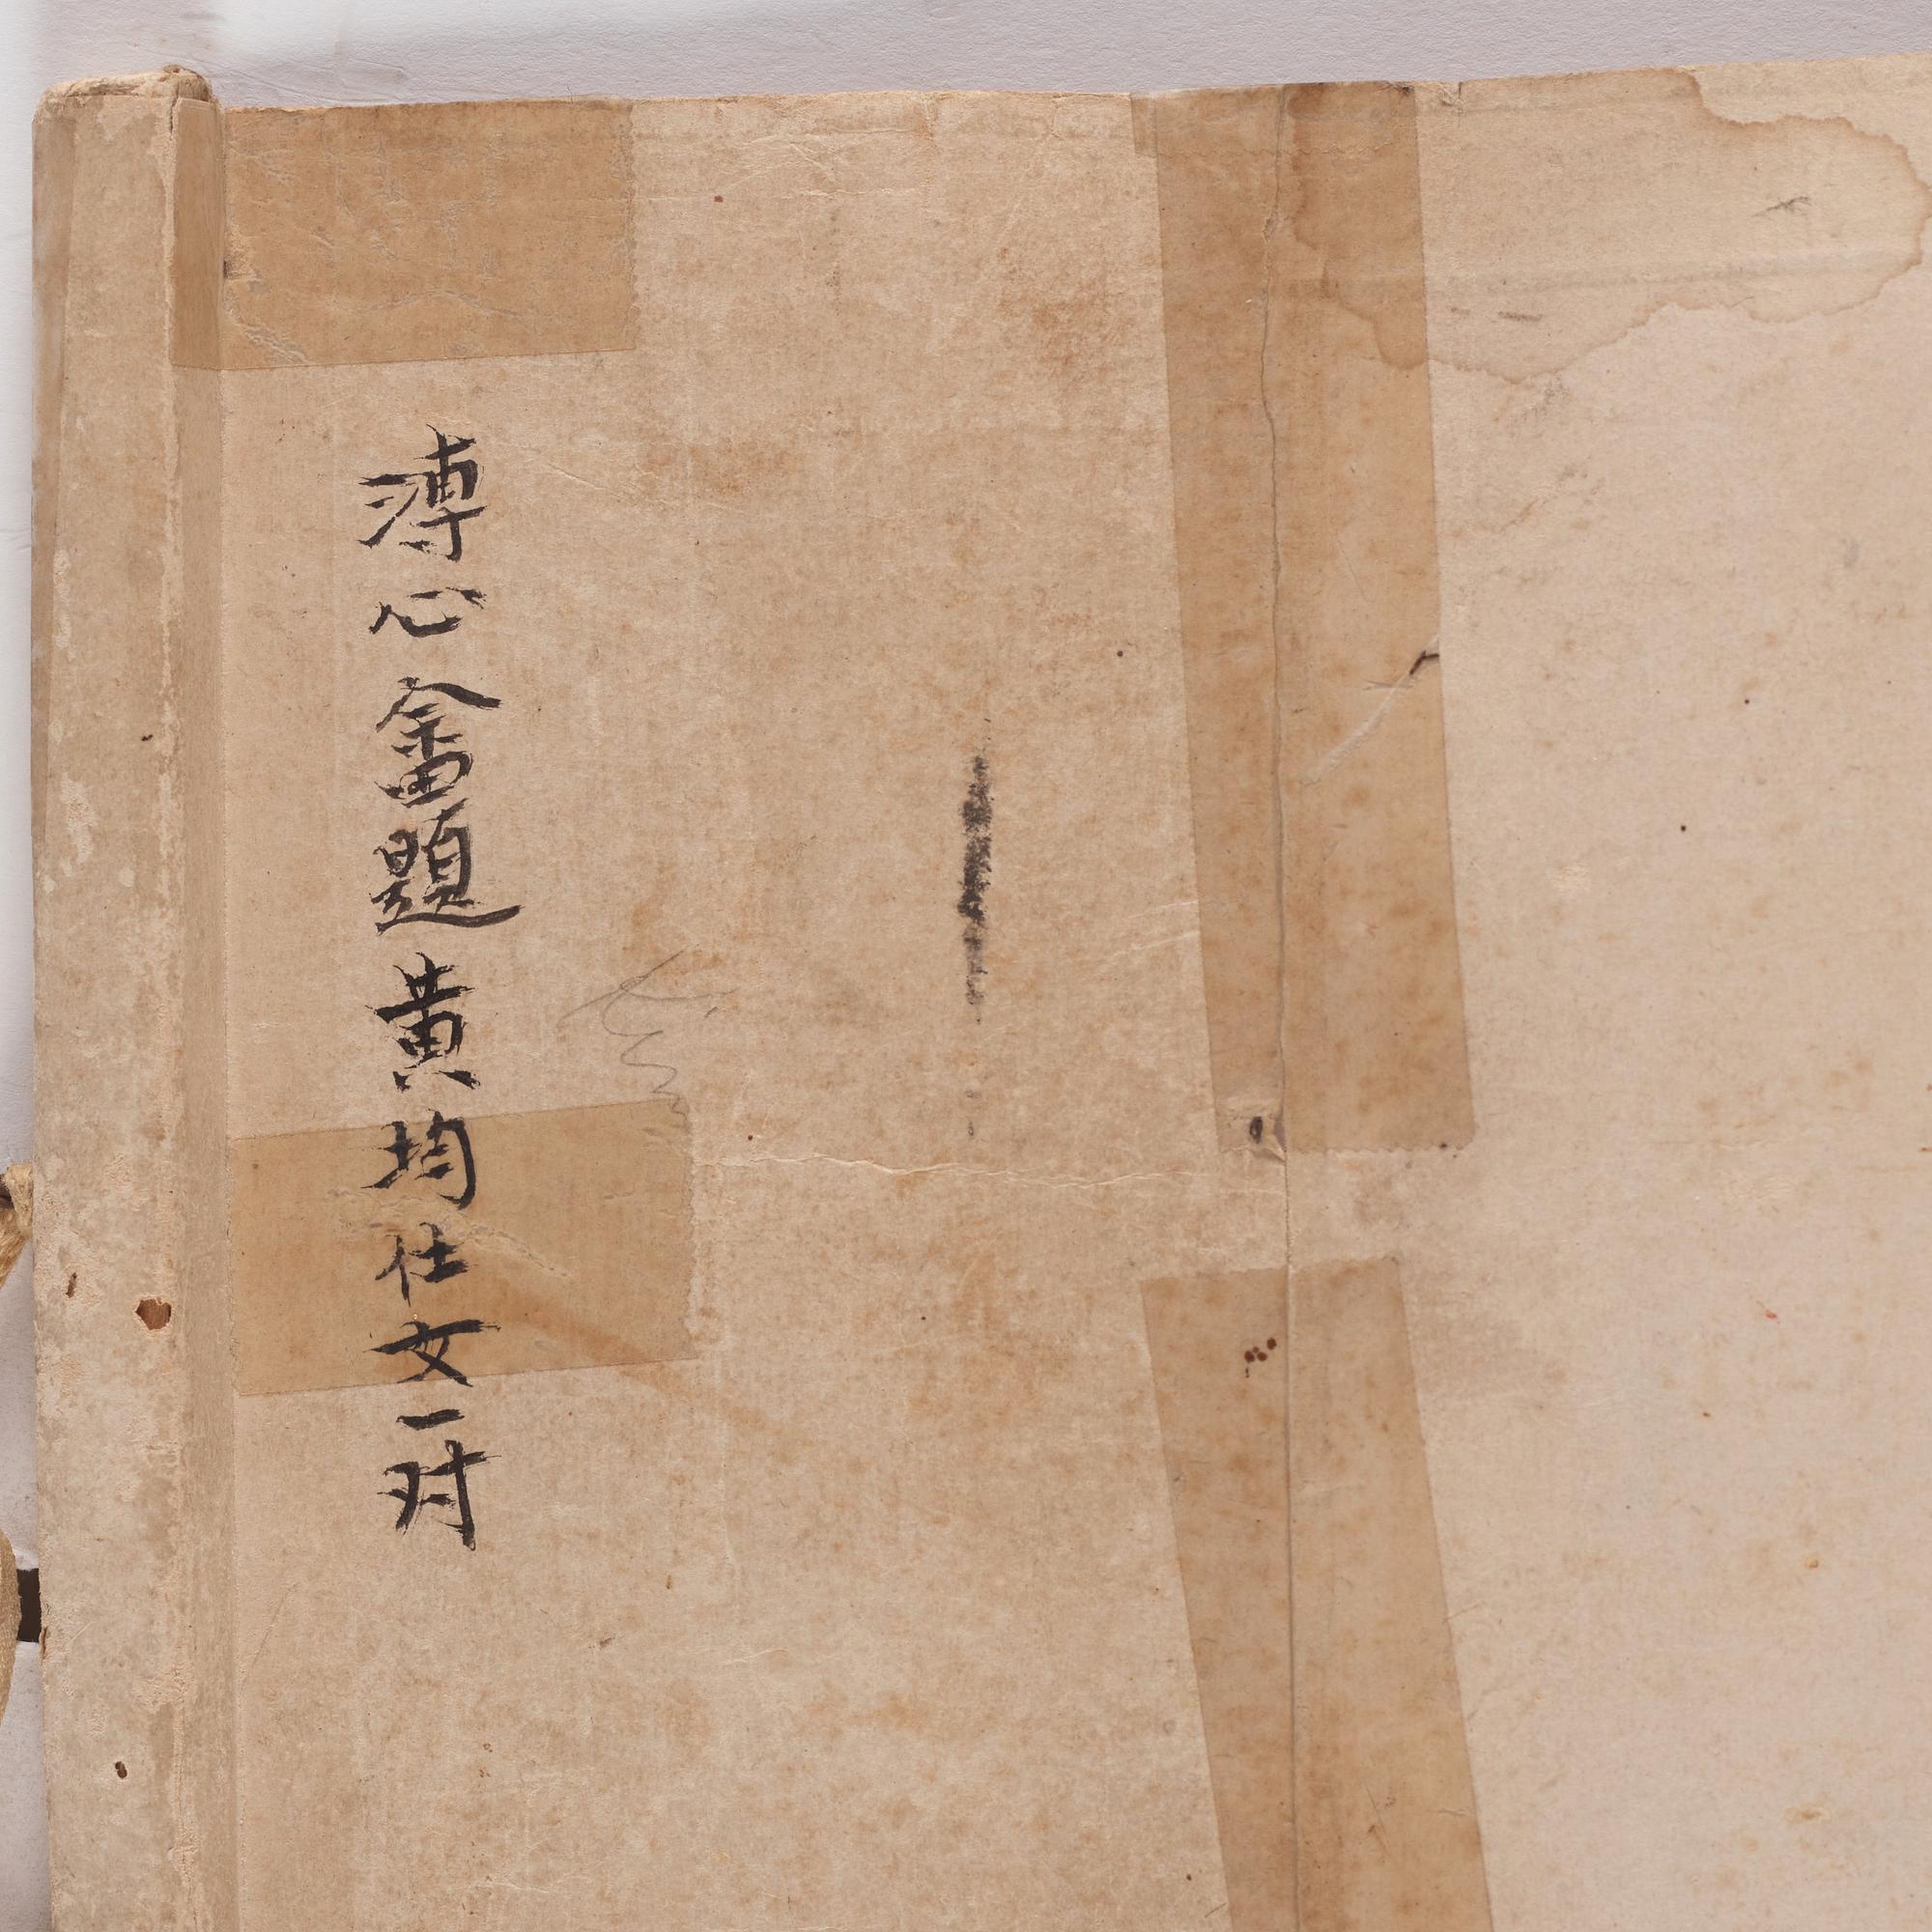 溥心畬題黃均仕女一对